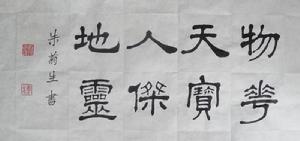 物華
天寶
人傑
地靈
朱蔚生書